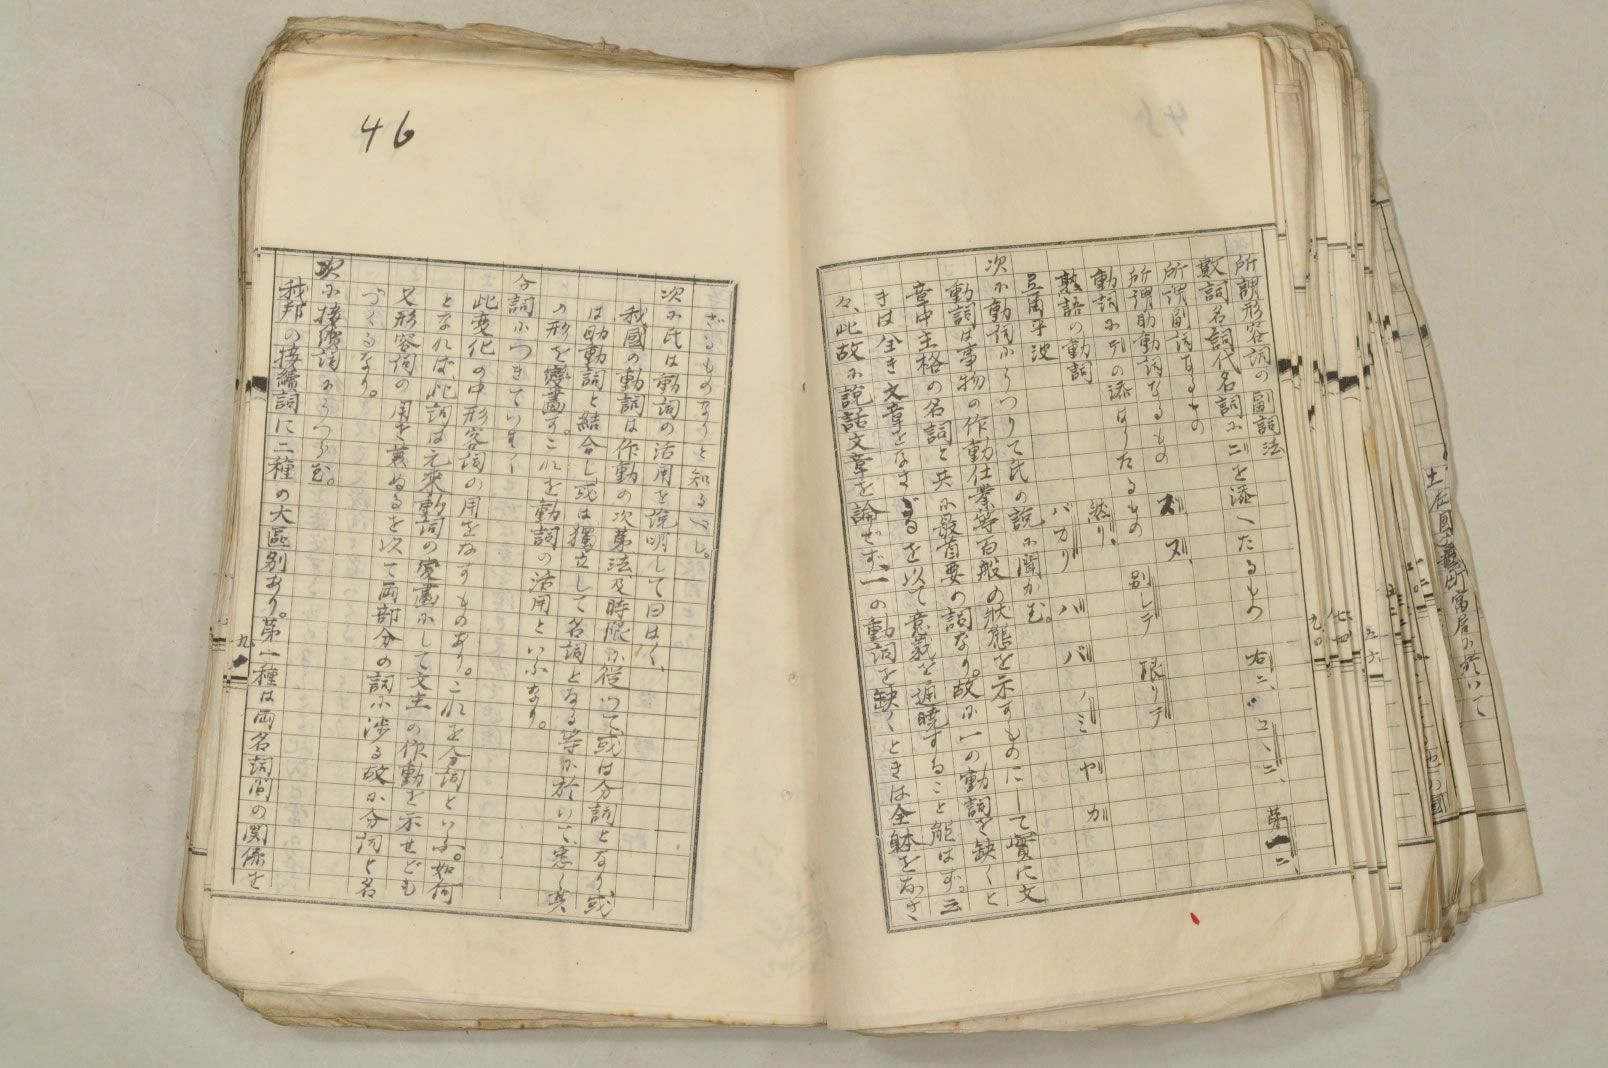 所謂形容詞の副詞法
數詞名詞代名詞ニ〝ニ〟を添へたるもの 右ニ、 コヽニ、 第一ニ、
所謂副詞なるもの
所謂助動詞なるもの ズ、 ヌ、 別レテ 限リテ
動詞にテの添はりたるもの
熟語の動詞 バカリ バ バ ノミ ヤ ガ
豆留平波
次に動詞にうつりて氏の説に聞かむ。
動詞は事物の作動仕業等百般の狀態を示すものにして實に文
章中主格の名詞と共に最首要の詞なり。故に一の動詞を缺くと
きは全き文章をなさゞるを以て意義を通曉すること能はず。云
々、此故に說話文章を論ぜず、一の動詞を缺くときは全躰をなさ
46
ざるものなりと知るべし。
次に氏は動詞の活用を説明して曰はく、
我國の動詞は作動の次第法及時限に從ひて或は分詞となり或
は助動詞と結合し或は獨立して名詞となる等に於いて、悉く其
の形を變畫す。これを動詞の活用といふなり。
分詞につきていはく
此変化の中形容詞の用をなすものあり。これを分詞といふ。如何
となれば此詞は元來動詞の変畫にして文主の作動を示せども
又形容詞の用を兼ぬるを以て両部分の詞に渉る故に分詞と名
づくるなり。
次に接續詞にうつらむ。
我邦の接續詞に二種の大區別あり。第一種は両名詞間の関係を
九一